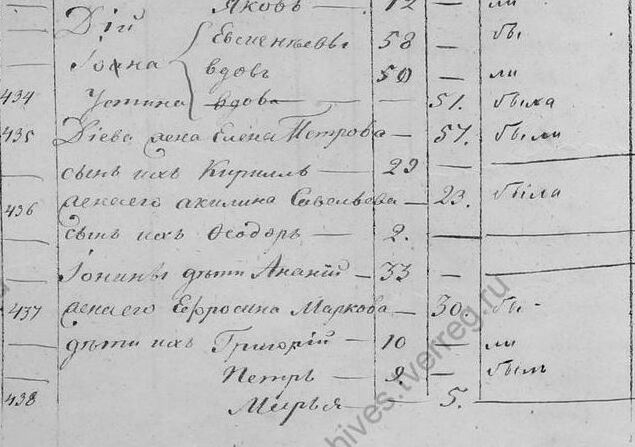 Яковъ — 12 — ли
Дій Евсигнѣевы 58 — бы
Іона вдовы 50 — ли
434 Устина вдова — — 51. была
435 Діева жена Елена Петрова — 57. были
сынъ ихъ Кириллъ — 29 —
436 жена его Акилина Савельева — 23. была
сынъ ихъ Ѳеодоръ — 2. — —
Іонины дѣти Ананій — 33 — —
437 жена его Ефросина Маркова — 30 бы-
дѣти ихъ Григорій — 10 — ли
Петръ — 9. — былъ
438 Марья — — 5.
chives.tverreg.ru